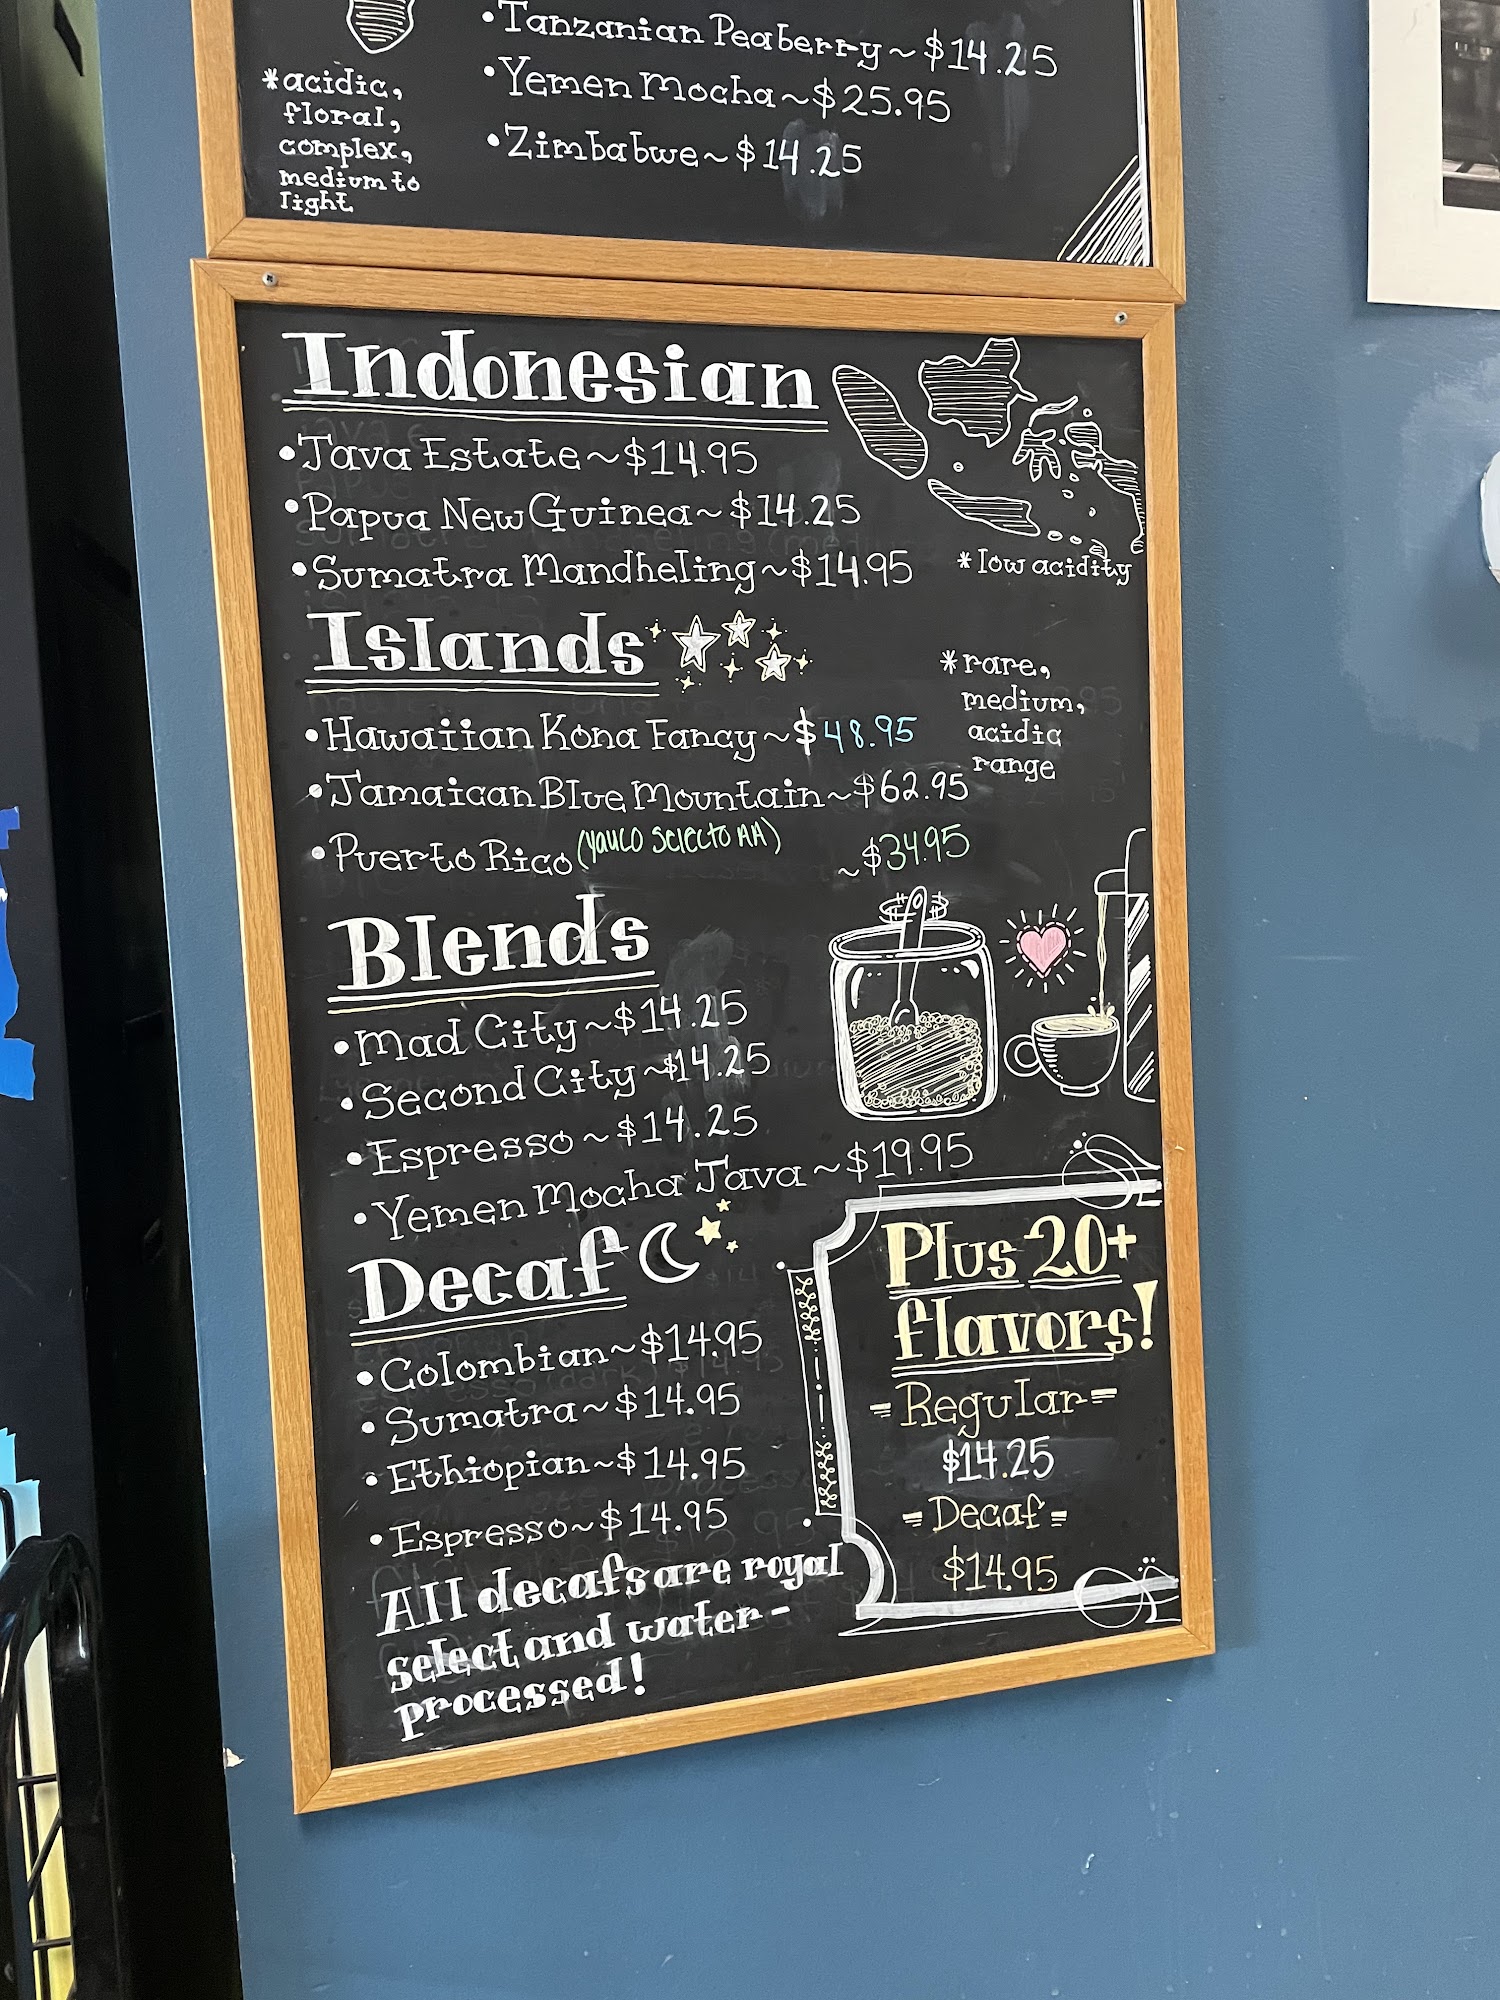 •Tanzanian Peaberry~$14.25
•Yemen Mocha~$25.95
•Zimbabwe~$14.25
*acidic,
floral,
complex,
medium to
light
Indonesian
•Java Estate~$14.95
•Papua New Guinea~$14.25
•Sumatra Mandheling~$14.95
*low acidity
Islands
•Hawaiian Kona Fancy~$48.95
•Jamaican Blue Mountain~$62.95
•Puerto Rico (Yauco Selecto AA) ~$34.95
*rare,
medium,
acidic
range
Blends
•Mad City~$14.25
•Second City~$14.25
•Espresso~$14.25
•Yemen Mocha Java~$19.95
Decaf
•Colombian~$14.95
•Sumatra~$14.95
•Ethiopian~$14.95
•Espresso~$14.95
All decafs are royal
select and water-
processed!
Plus 20+
flavors!
=Regular=
$14.25
=Decaf=
$14.95